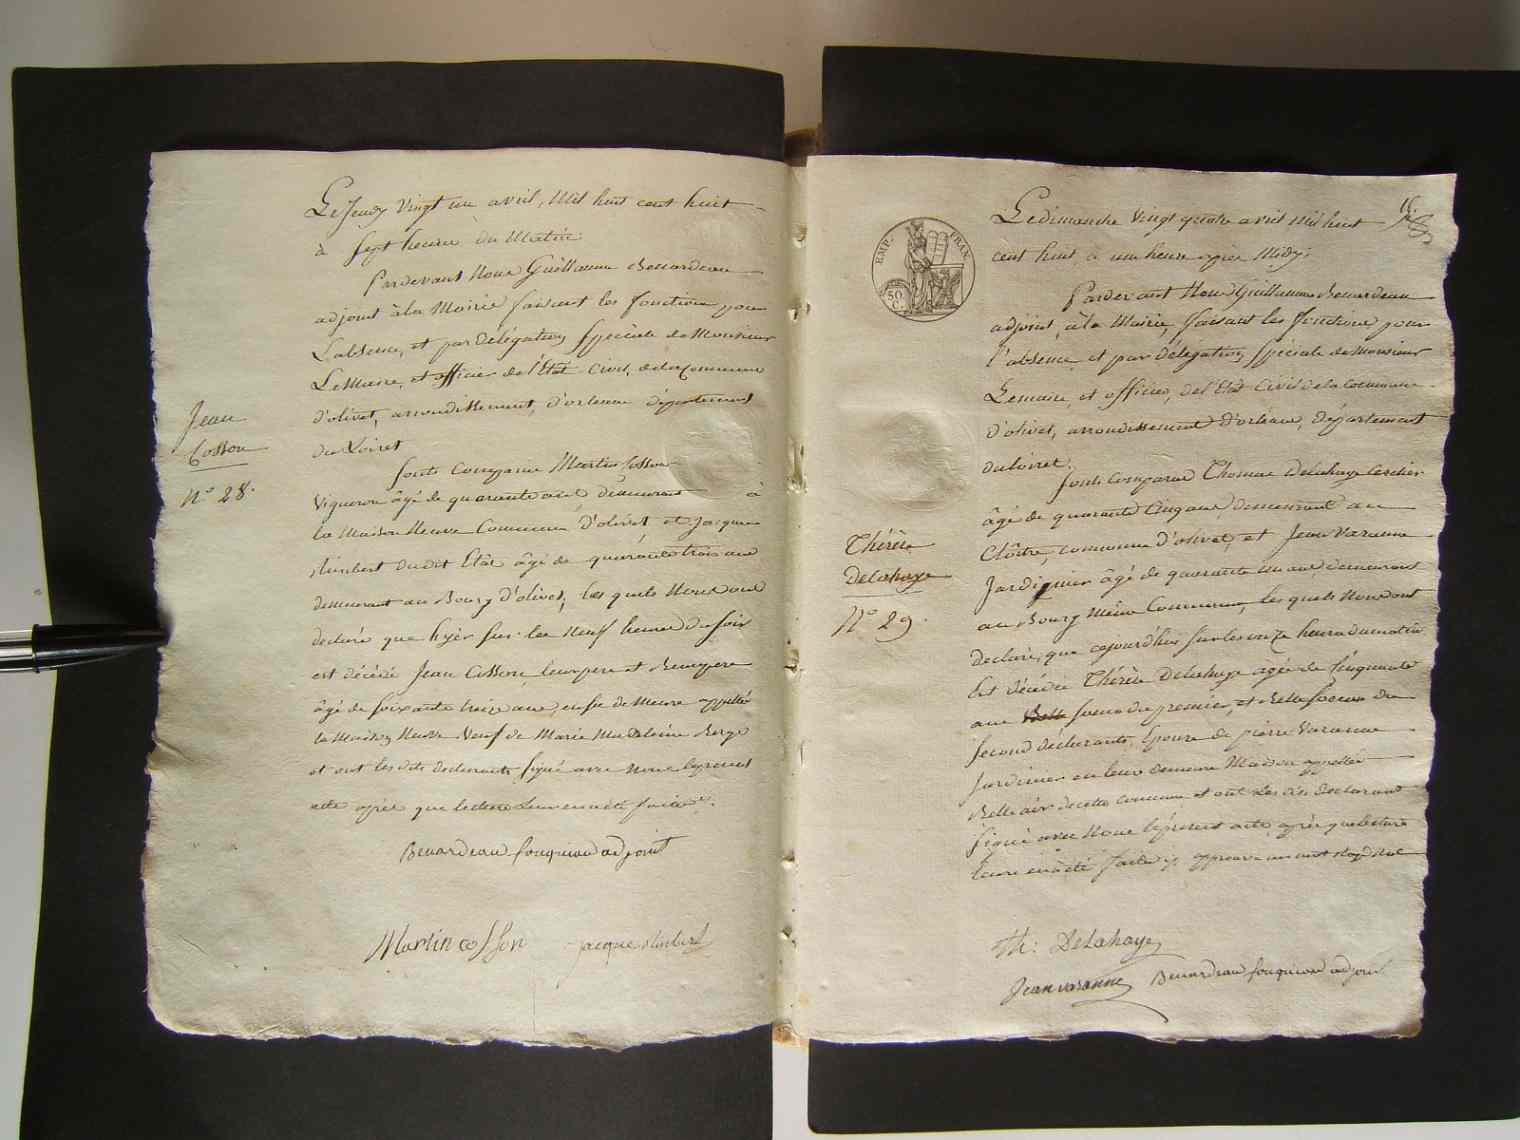 Jean
Cosson
N° 28.
Le Jeudy Vingt un avril, Mil huit cent huit
à Sept heures du Matin
Pardevant Nous Guillaume Benardeau
adjoint à la Mairie faisant les fonctions pour
L'absence, et par délégation Spéciale de Monsieur
Le Maire, et officier de l'Etat Civil, de la Commune
d'olivet, arrondissement, d'orléans département
du Loiret
Sont Comparus Martin Cosson
Vigneron âgé de quarante ans demeurant à
la Maison Neuve Commune d'olivet, et Jacques
dudit Etat âgé de quarante trois ans
demeurant au Bourg d'olivet, les quels Nous ont
declaré que hyer sur les Neuf heures du Soir
est décédé Jean Cosson, leur pere et Beaupere
âgé de soixante treize ans, en sa demeure appellé
la Maison Neuve Veuf de Marie Madeleine
et ont les dits declarants signé avec Nous le présent
acte après que lecture Leur en a été faite
Benardeau fouqueau adjoint
Martin cosson jacque
EMP. FRAN.
50 C.
Thérèse
Delahaye
N° 29.
Le dimanche Vingt quatre avril Mil huit
cent huit, à une heure après Midy,
Pardevant Nous Guillaume Benardeau
adjoint, à la Mairie, faisant les fonctions pour
l'absence, et par délégation Spéciale de Monsieur
Lemaire, et officier, de l'Etat Civil de la Commune
d'olivet, arrondissement d'orléans, département
du loiret.
Sont Comparus Thomas Delahaye
âgé de quarante Cinq ans demeurant au
Cloître, commune d'olivet, et Jean Varanne
Jardinier âgé de quarante un ans, demeurant
au Bourg Même Commune, les quels Nous ont
Declaré, que cejourd'hui sur les onze heures du matin
Est décédée Thérèse Delahaye agée de Cinquante
ans Belle soeur du premier, et Belle soeur du
second déclarants, Epouse de pierre Varanne
Jardinier en leur demeure Maison appellée
Belle air de cette commune et ont Les dits Declarants
signé avec Nous le présent acte après que lecture
Leur en a été faite approuvé un mot rayé Nul
Th: Delahaye
Jean varanne Benardeau fouqueau adjoint